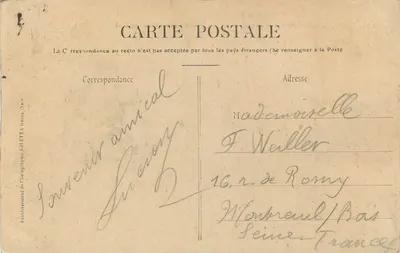 CARTE POSTALE
La Correspondance au recto n'est pas acceptée par tous les pays étrangers (Se renseigner à la Poste
Correspondance
Adresse
Souvenir amical
Mademoiselle
F. Weiller
16, r. de Romy
Montreuil/Bois
Seine France